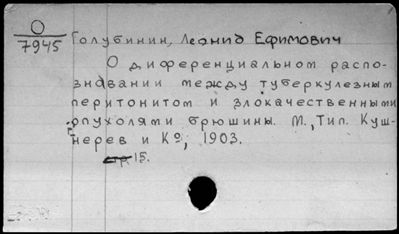 О
7945
Голубинин, Леонид Ефимович
О диференциальном распо-
знавании между туберкулезным
перитонитом и злокачественными
опухолями брюшины. М., Тип. Куш-
нерев и Кº, 1903.
стр. 15.